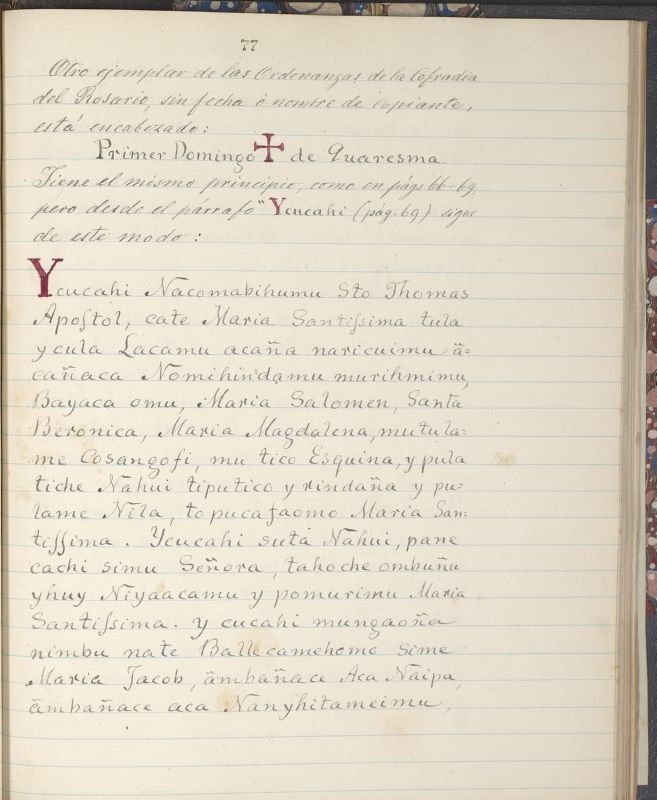 77
Otro ejemplar de las Ordenanzas de la Cofradia
del Rosario, sin fecha ó nombre de copiante,
está encabezado:
Primer Domingo ✝ de Quaresma
Tiene el mismo principio, como en págs 66-69,
pero desde el párrafo "Ycucahi (pág. 69) sigue
de este modo:
Ycucahi Nacomabihumu Sto Thomas
Apoſtol, cate Maria Santiſsima tula
y cula Lacamu acaña naricuimu ä=
cañaca Nomihindamu murihmimu,
Bayaca omu, Maria Salomen, Santa
Beronica, Maria Magdalena, mutula=
me Cosangofi, mu tico Esquina, y pula
tiche Nahui tiputico y rindaña y pu=
lame Nila, to pucafaomo Maria San=
tiſſima. Ycucahi suta Nahui, pane
cachi simu Señora, tahoche ombuñu
yhuy Niyaacamu y pomurimu Maria
Santiſsima. y cucahi mungaoña
nimbu nate Ballecamehomo sime
Maria Jacob, ämbañace Aca Naipa,
ämbañace aca Nanyhitameimu,